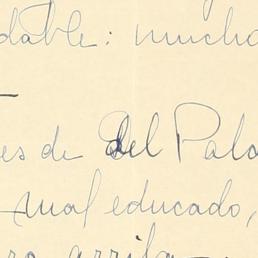 dable: mucho
es de del Pala
— mal educado,
ro arriba —